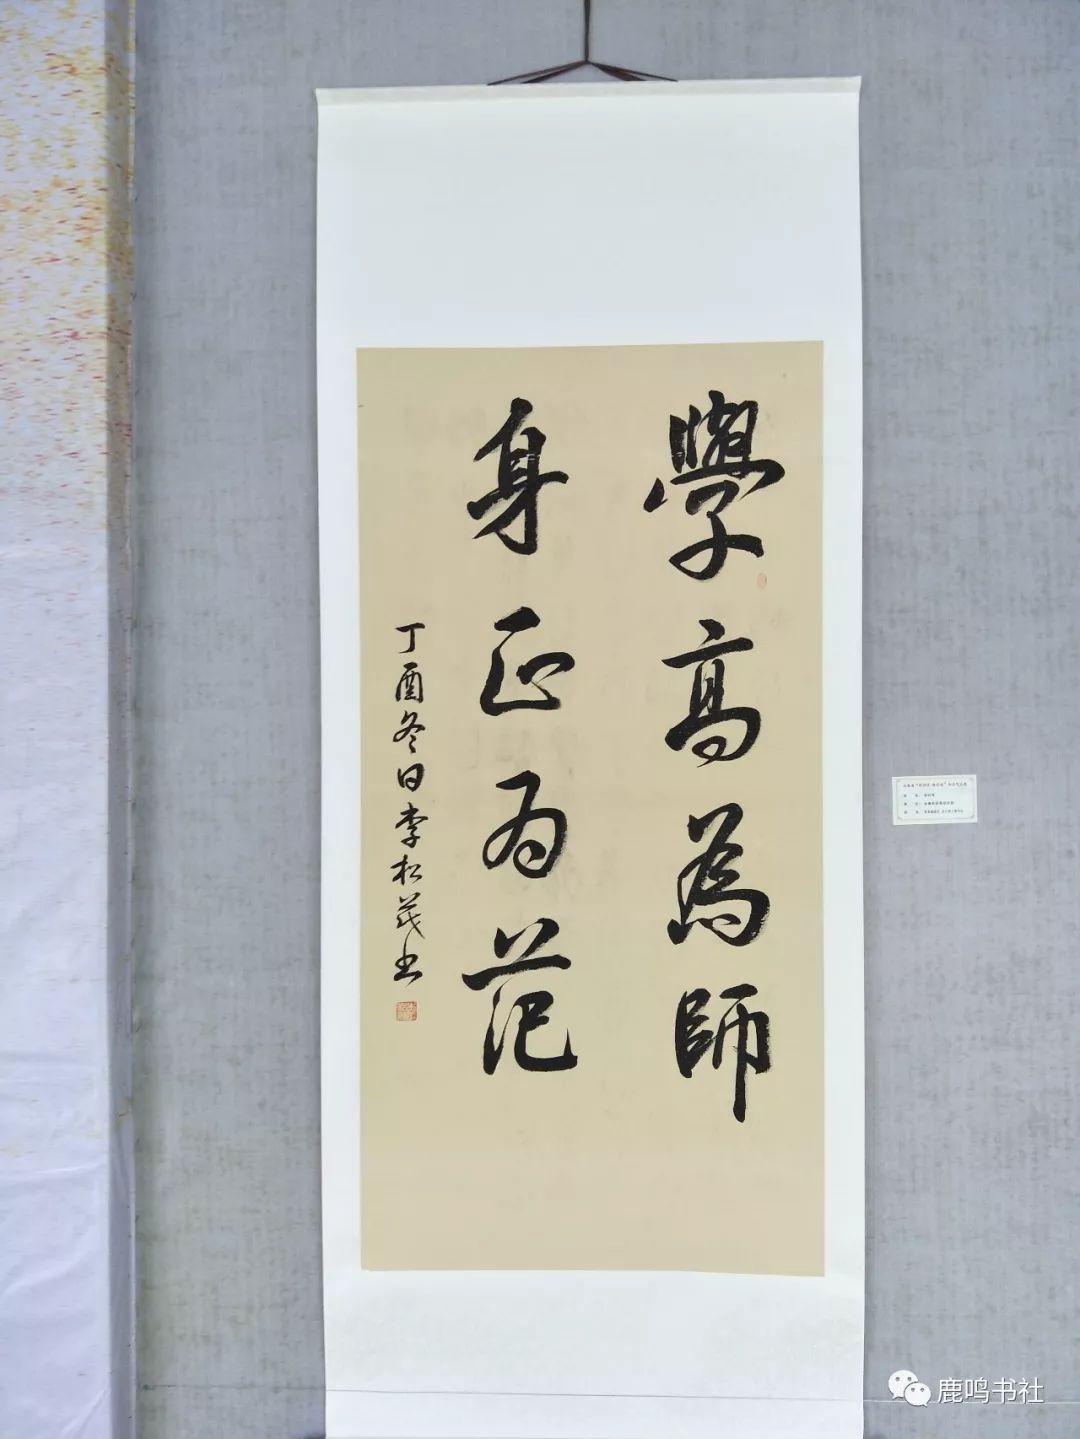 學高為師
身正为范
丁酉冬日李松茂书
鹿鸣书社